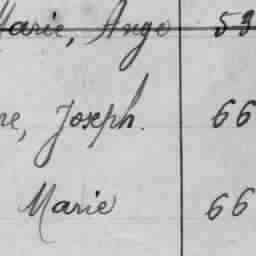 Marie, Ange 53
ne, Joseph. 66
Marie 66